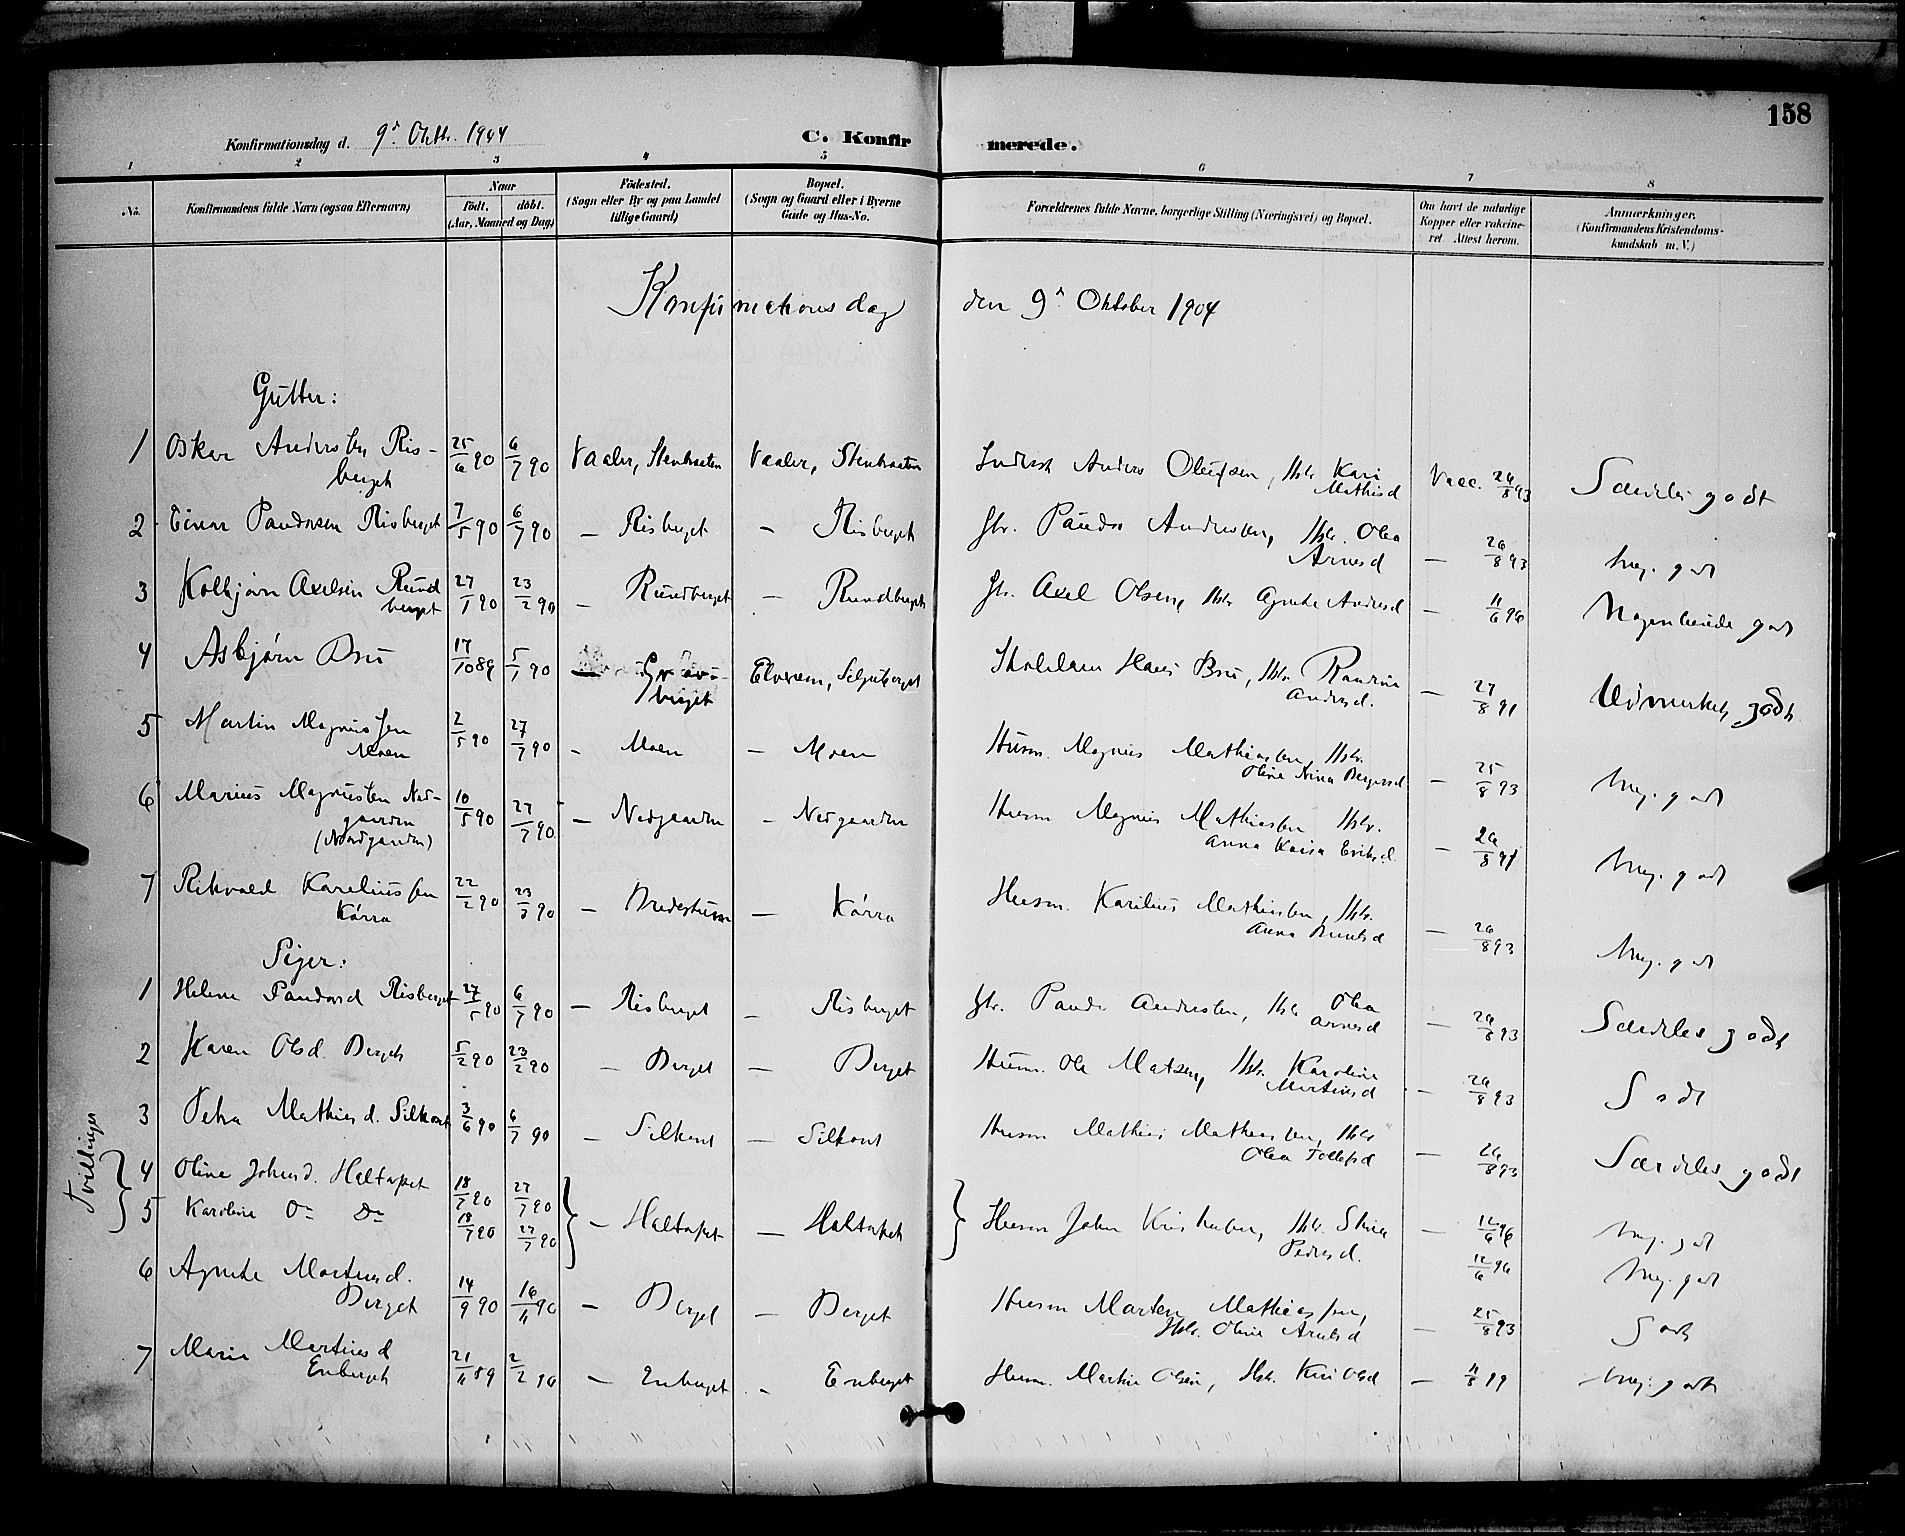 158
Konfirmationsdag d. 9d Oktbr. 1904
C. Konfirmerede.
1 2 3 4 5 6 7 8
No.
Konfirmandens fulde Navn (ogsaa Efternavn)
Naar
født. døbt.
(Aar, Maaned og Dag)
Fødested.
(Sogn eller By og paa Landet
tillige Gaard)
Bopæl.
(Sogn og Gaard eller i Byerne
Gade og Hus-No.
Forældrenes fulde Navne, borgerlige Stilling (Næringsvei) og Bopæl.
Om havt de naturlige
Kopper eller vakcine-
ret. Attest herom.
Anmærkninger.
(Konfirmandens Kristendoms-
kundskab m. V.)
Konfirmationsdag den 9d Oktober 1904
Gutter:
1 Oskar Andersen Ris- 25/6 90 6/7 90 Vaaler, Stenbraaten Vaaler, Stenbraaten Anders Olufsen, Hstr. Kari Vacc. 26/8 93 Særdeles godt
berget Mathisd
2 Einar Paudersen Risberget 7/5 90 6/7 90 — Risberget — Risberget Gbr. Pauder Andersen, Hstr. Olea — 26/8 93 Meg. godt
Arnesd
3 Kolbjørn Axelsen Rund 27/1 90 23/2 90 — Rundberget — Rundberget Gbr. Axel Olsen, Hstr Agnethe Andersd — 11/6 96 Nogenlunde godt
berget
4 Asbjørn Bru 17/10 89 5/1 90 — Gravberget Elverum, Hans Bru, Hstr. Randine — 27/8 91 Udmerket godt
Andersd.
5 Martin Magnussen 2/5 90 27/7 90 — Moen — Moen Husm. Magnus Mathiassen, Hstr. — 25/8 93 Meg. godt
Moen Oline Nina Bergersd
6 Marius Magnussen Ned- 10/5 90 27/7 90 — Nedgaarden — Nedgaarden Husm Magnus Mathiassen Hstr. — 26/8 91 Meg. godt
gaarden Anna Kaisa Eriksd.
(Nordgaarden)
7 Rikvald Kareliussen 22/2 90 23/3 90 — — Kørra Husm. Karelius Mathiassen, Hstr. — 26/8 93 Meg. godt
Kørra Anna
Piger:
1 Helene Paudersd Risberget 27/5 90 6/7 90 — Risberget — Risberget Gbr. Pauder Andersen, Hstr Olea — 26/8 93 Særdeles godt
Arnesd
2 Karen Olsd. Berget 5/2 90 23/2 90 — Berget — Berget Husm. Ole Matsen, Hstr. Karoline — 26/8 93 Godt
Martinsd
3 Petra Mathiasd. Silkoset 3/6 90 6/7 90 — Silkoset — Silkoset Husm Mathias Mathiassen, Hstr — 26/8 93 Særdeles godt
Olea Tollefsd
Tvillinger
4 Oline Johansd. Haltorpet 18/7 90 27/7 90
5 Karoline Do Do 18/7 90 27/7 90 — Haltorpet — Haltorpet Husm Johan Kristiansen, Hstr. Stina — 12/6 96 Meg. godt
Pedersd. 12/6 96 Meg. godt
6 Agnethe Martinsd. 14/9 90 16/11 90 — Berget — Berget Husm Marten Mathiassen, — 25/8 93 Godt
Berget Hstr. Oline Arnesd
7 Marie Martinsd 21/11 89 2/2 90 — Enberget — Enberget Husm. Martin Olsen, Hstr. Kari Olsd — 11/8 99 Meg. godt
Enberget